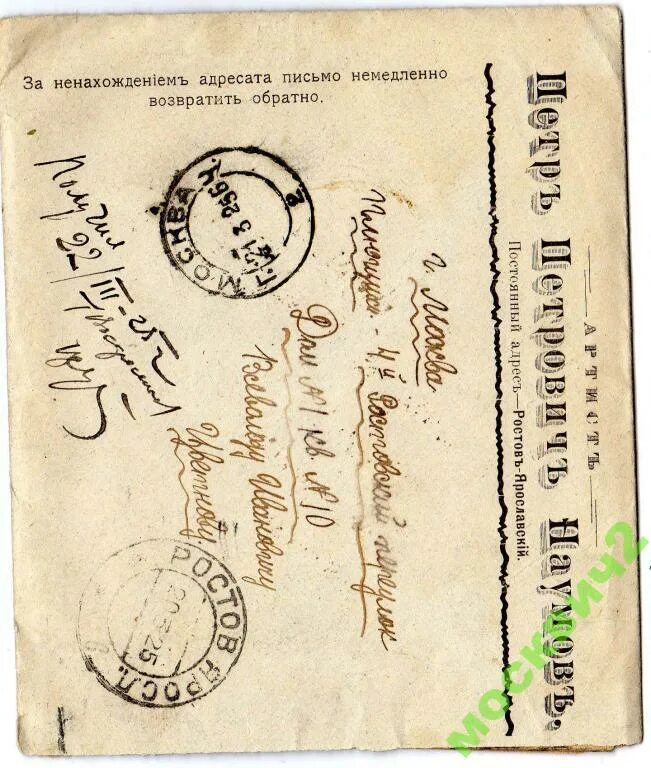 За ненахожденіемъ адресата письмо немедленно
возвратить обратно.
АРТИСТЪ
Петръ Петровичъ Наумовъ.
Постоянный адресъ—Ростовъ-Ярославскій.
г. Москва
Плющиха - 4й Ростовский переулок
Дом №1 кв. №10
Всеволоду Ивановичу
Цветкову
Получил
22/III-25г
МОСКВА
21 3 25
РОСТОВ ЯРОСЛ.
20 3 25
москвич2